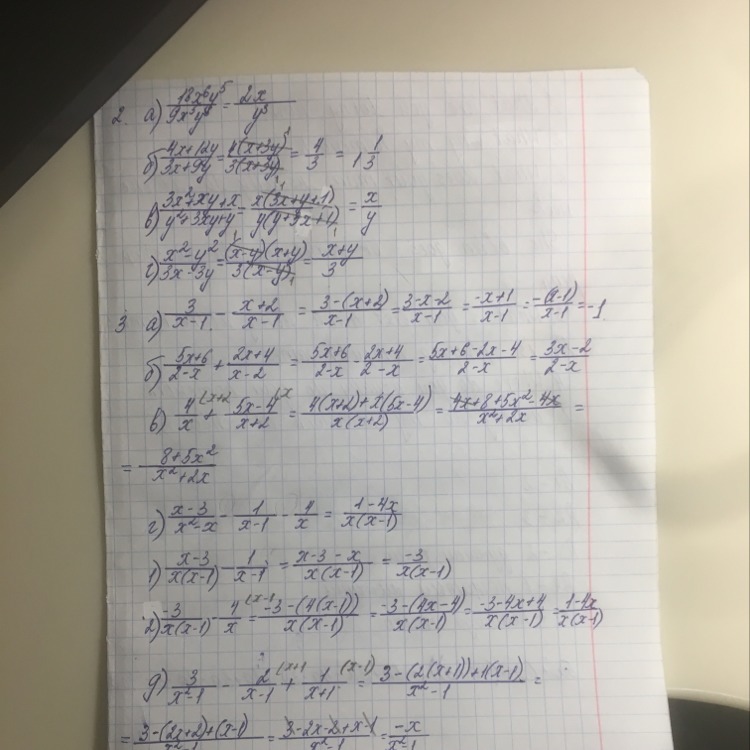 2. а) 18x⁶y⁵/9x⁵y⁸ = 2x/y³
б) 4x+12y/3x+9y = 4(x+3y)/3(x+3y) = 4/3 = 1 1/3
в) 3x²+xy+x/y²+3xy+y = x(3x+y+1)/y(y+3x+1) = x/y
г) x²-y²/3x-3y = (x-y)(x+y)/3(x-y) = x+y/3
3 а) 3/x-1 - x+2/x-1 = 3-(x+2)/x-1 = 3-x-2/x-1 = -x+1/x-1 = -(x-1)/x-1 = -1
б) 5x+6/2-x + 2x+4/x-2 = 5x+6/2-x - 2x+4/2-x = 5x+6-2x-4/2-x = 3x-2/2-x
в) 4/x (x+2 + 5x-4/x+2 (x = 4(x+2)+x(5x-4)/x(x+2) = 4x+8+5x²-4x/x²+2x =
= 8+5x²/x²+2x
г) x-3/x²-x - 1/x-1 - 4/x = 1-4x/x(x-1)
1) x-3/x(x-1) - 1/x-1 = x-3-x/x(x-1) = -3/x(x-1)
2) -3/x(x-1) - 4/x (x-1 = -3-(4(x-1))/x(x-1) = -3-(4x-4)/x(x-1) = -3-4x+4/x(x-1) = 1-4x/x(x-1)
д) 3/x²-1 - 2/x-1 (x+1 + 1/x+1 (x-1) = 3-(2(x+1))+1(x-1)/x²-1 =
= 3-(2x+2)+(x-1)/x²-1 = 3-2x-2+x-1/x²-1 = -x/x²-1